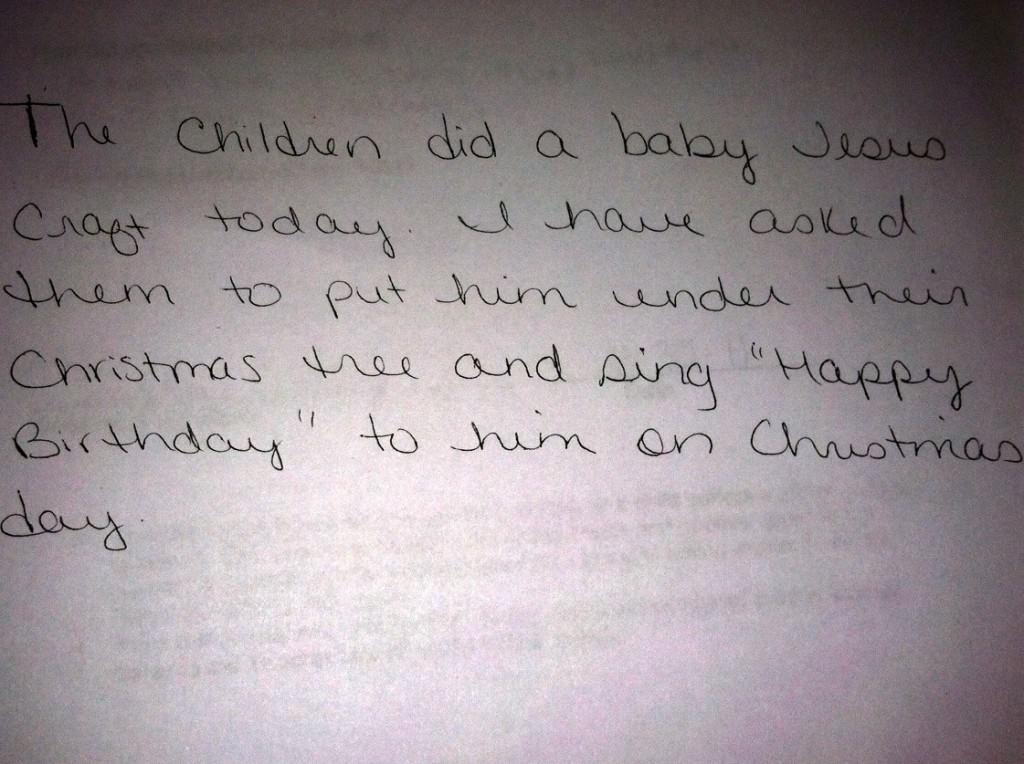 The Children did a baby Jesus
Craft today. I have asked
them to put him under their
Christmas tree and sing "Happy
Birthday" to him on Christmas
day.